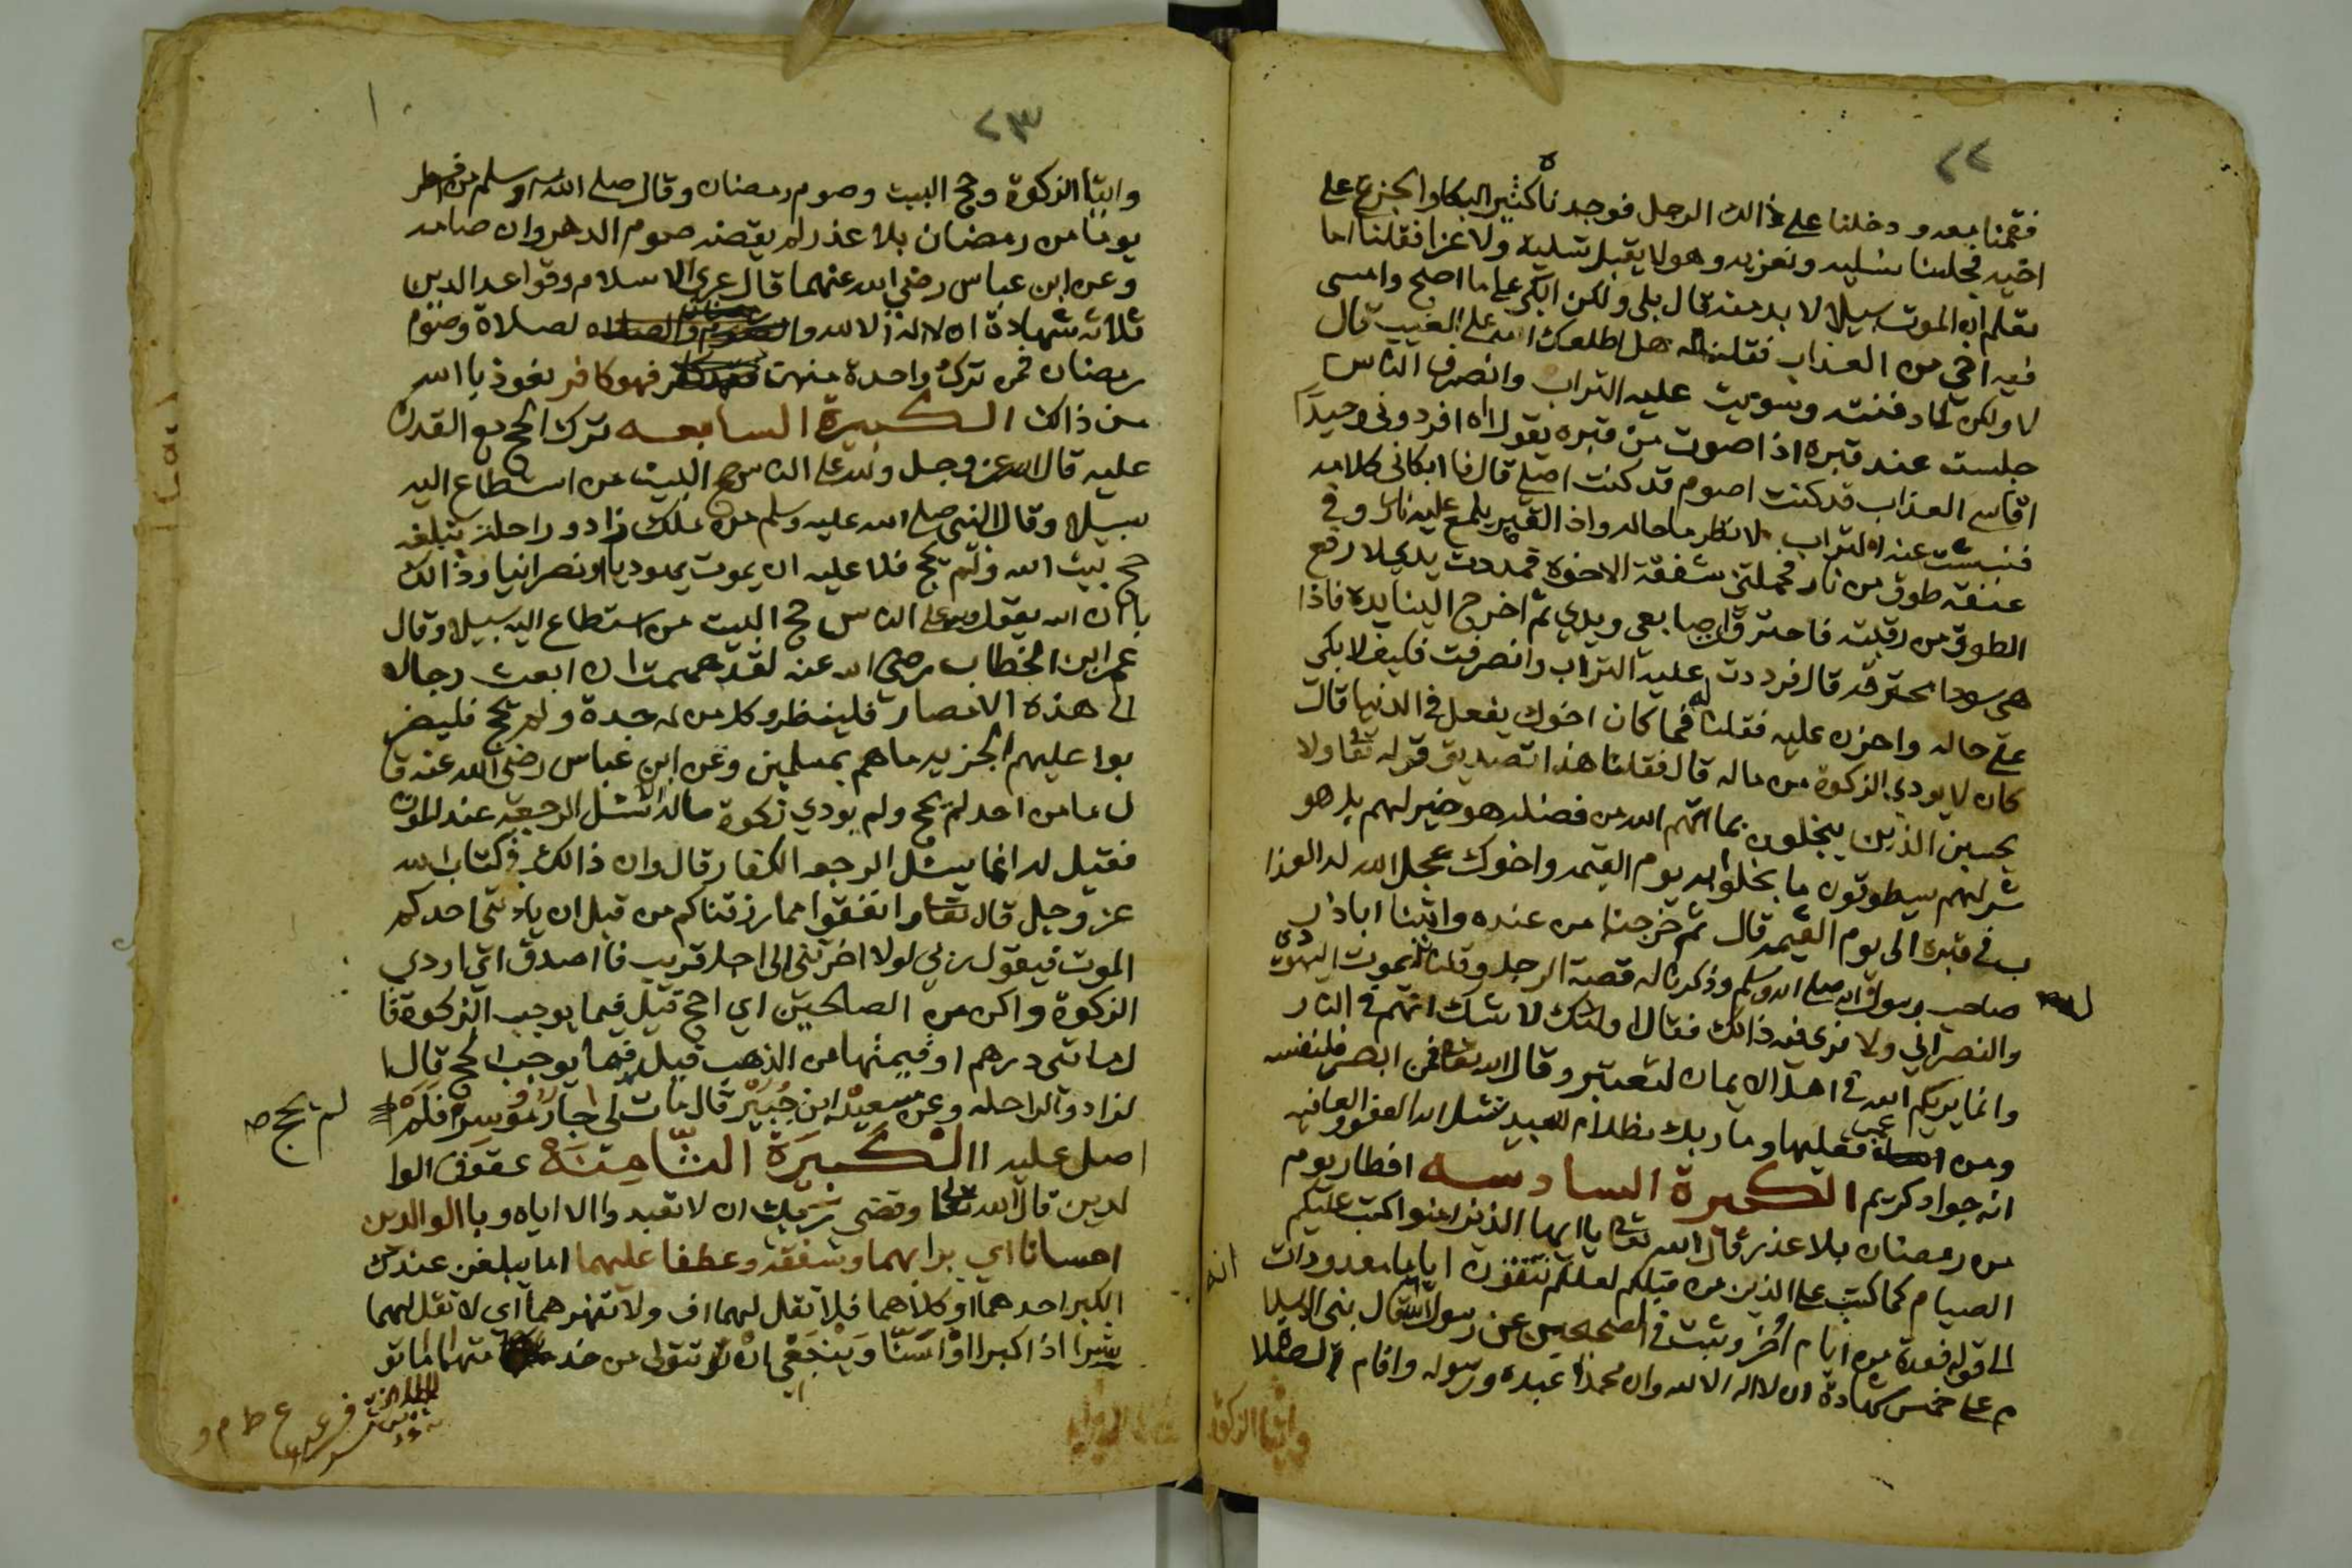 ٢٢
فقمنا معه ودخلنا على ذالك الرجل فوجدناه كثير البكا والجزع على
اخيه فجلسنا نسليه ونعزيه وهو لا يقبل تسلية ولا عزا فقلنا اما
تعلم ان الموت سبيلا لا بد منه قال بلى ولكن ابكي على ما اصبح وامسى
فيه اخي من العذاب فقلنا له هل اطلعك الله على الغيب قال
لا ولكن لما دفنته وسويت عليه التراب وانصرف الناس
جلست عند قبره اذا صوت من قبره يقول اه افردوني وحيدًا
اقاسي العذاب قد كنت اصوم قد كنت اصلي قال فا ابكاني كلامه
فنبشت عنه التراب لانظر ما حاله واذ القبر يلمع عليه نار وفي
عنقه طوق من نار فحملتني شفقة الاخوة فمددت يدي لا رفع
الطوق من رقبته فاحترقة اصابعي ويدي ثم اخرج الينا يده فاذا
هي سودا محترقه قال فرددت عليه التراب وانصرفت فكيف لا بكي
على حاله واحزن عليه فقلنا له فما كان اخوك يفعل في الدنيا قال
كان لا يودي الزكوة من ماله قال فقلنا هذا تصديق قوله تعا ولا
يحسبن الذين يبخلون بما اتهم الله من فضله هو خير لهم بل هو
شر لهم سيطوقون ما بخلوا به يوم القيمه واخوك عجل الله له العذا
ب في قبره الى يوم القيمه قال ثم خرجنا من عنده واتينا اباذر
صاحب رسول الله صلى الله وسلم وذكرنا له قصة الرجل وقلنا له يموت اليهودي
والنصراني ولا نرى فيه ذالك فقال اولئك لا شك انهم في النار
وانما يريكم الله في اهل الايمان لتعتبر وقال الله تعا فمن ابصر فلنفسه
ومن عمى فعليها وما ربك بظلام للعبيد نسئل الله العفو والعافيه
انه جواد كريم الكبيرة السادسه افطار يوم
من رمضان بلا عذر قال الله تعا يا ايها الذين امنوا كتب عليكم
الصيام كما كتب على الذين من قبلكم لعلكم تتقون اياما معدودات
الى قوله فعدة من ايام اخر وثبت في الصحيحين عن رسول الله قال بني الاسلا
م على خمس شهادة ان لا اله الا الله وان محمدًا عبده ورسوله واقام الصلا
وايتا الزكوة
٢٣
وايتا الزكوة وحج البيت وصوم رمضان وقال صلى الله وسلم من فطر
يومًا من رمضان بلا عذر لم يقضه صوم الدهر وان صامه
وعن ابن عباس رضي الله عنهما قال عرى الاسلام وقواعد الدين
ثلاثه شهادة ان لا اله الا الله والصلاة وصوم
رمضان فمن ترك واحدة منهن فهو كافر نعوذ با الله
من ذالك الكبيرة السابعه ترك الحج مع القدرة
عليه قال الله عز وجل ولله على الناس حج البيت من استطاع اليه
سبيلا وقال النبي صلى الله عليه وسلم من ملك زادو راحلة تبلغه
حج بيت الله ولم يحج فلا عليه ان يموت يهوديا او نصرانيا وذالك
با ان الله يقول ولله على الناس حج البيت من استطاع اليه سبيلا وقال
عمر ابن الخطاب رضي الله عنه لقد هممت ان ابعث رجالا
الى هذه الامصار فلينظروا كل من له جدة ولم يحج فليضر
بوا عليهم الجزيه ما هم بمسلمين وعن ابن عباس رضي الله عنه قا
ل ما من احد لم يحج ولم يودي زكوة ماله الا سئل الرجعة عند الموت
فقيل له انما يسئل الرجعه الكفار قال وان ذالك في كتاب الله
عز وجل قال تعا وانفقوا مما رزقناكم من قبل ان ياتي احدكم
الموت فيقول ربي لولا اخرتني الى اجل قريب فا اصدق اي اودي
الزكوة واكن من الصالحين اي احج قيل فيما يوجب الزكوة قا
ل مائتي درهم او قيمتها من الذهب قيل فما يوجب الحج قال ا
لزاد والراحله وعن سعيد ابن جُبَيْر قال مات لي جار مُوْسِرٌ فلم
لم يحج ص
اصل عليه الْكَبِيَرة الثَّامِنَة عقوق الوا
لدين قال الله تعا وقضى ربك ان لا تعبدوا الا اياه وبا الوالدين
احسانا اي برا بهما وشفقة وعطفا عليهما اما يبلغن عندك
الكبر احدهما او كلاهما فلا تقل لهما اف ولا تنهرهما اي لا تقل لهما
شرا اذ اكبرا اوْ اَسَنَّا وَيَنْبَغِي انْ تتولى من خد متهما ما تو